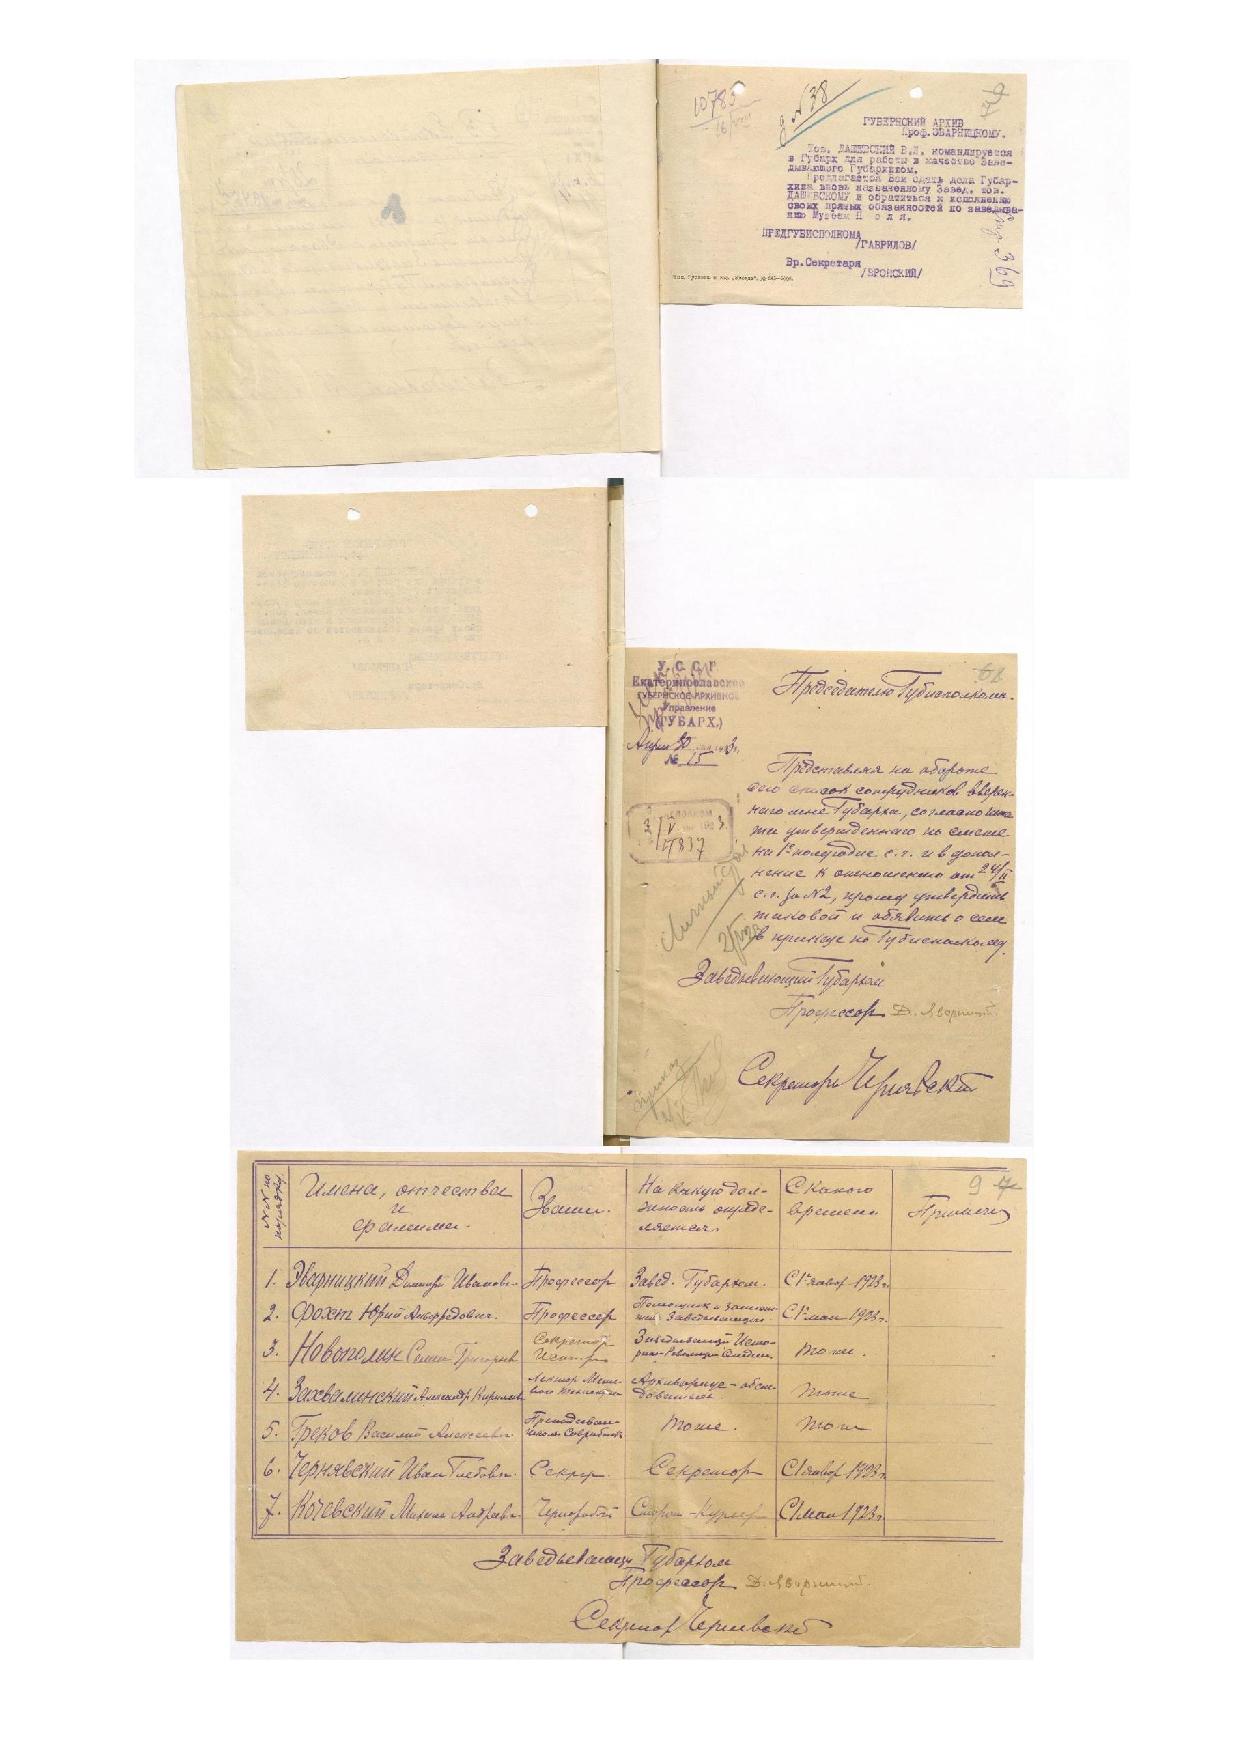 10783
16/VIII
N 38
ГУБЕРНСКИЙ АРХИВ
Проф. ЭВАРНИЦКОМУ.
Тов. ДАШЕВСКИЙ В.Л. командируется
в Губарх для работы в качестве Заве-
дывающего Губархивом.
Предлагается Вам сдать дела Губар-
хива вновь назначенному Завед. тов.
ДАШЕВСКОМУ и обратиться к исполнению
своих прямых обязанностей по заведыва-
нию Музеем П о л я.
ПРЕДГУБИСПОЛКОМА
/ГАВРИЛОВ/
Вр.Секретаря
/ВРОНСКИЙ/
369
У. С. С. Р.
Екатеринославское
ГУБЕРНСКОЕ АРХИВНОЕ
Управление
(ГУБАРХ.)
№ 15
Председателю Губисполкома.
Представляя на обороте
сего список сотрудников вверен-
наго мне Губарха, согласно
утвержденнаго по смете
на 1е полугодие с.г. и в допол-
нение к отношению от 24/II
с.г. за №2, прошу утвердить
таковой и объявить о сем
в приказе по Губисполкому.
3/V
7837
Личный стол
Заведывающий Губархом
Профессор Д. Яворницкий.
Секретарь Чернявский
приказ
№№ по порядку.
Имена, отчества и фамилии.
Звание.
На какую дол-
жность опреде-
ляется.
С какого времени
Примеч.
97
1. Эварницкий Дмитрий Иванов. Профессор Завед. Губархом. С 1 январ 1923 г.
2. Фохт Юрий Альфредович. Профессор Помощник и Заведывающего С 1 мая 1923 г.
3. Новополин Семен Григорьев Секретарь Истпарта Заведывающий Исто-
рико-Революц. тоже.
4. Захвалинский Александр Кирилов Лектор Архивариус-обсл- тоже
5. Греков Василий Алексеевич. Преподават. школы Совработн. тоже. тоже
6. Чернявский Иван Глебов. Секрет. Секретарь С 1 январ 1923 г.
7. Кочевский Михаил Андреев. Чернорабоч Сторож-Курьер С 1 мая 1923 г.
Заведывающий Губархом
Профессор Д. Яворницкий.
Секретарь Чернявский